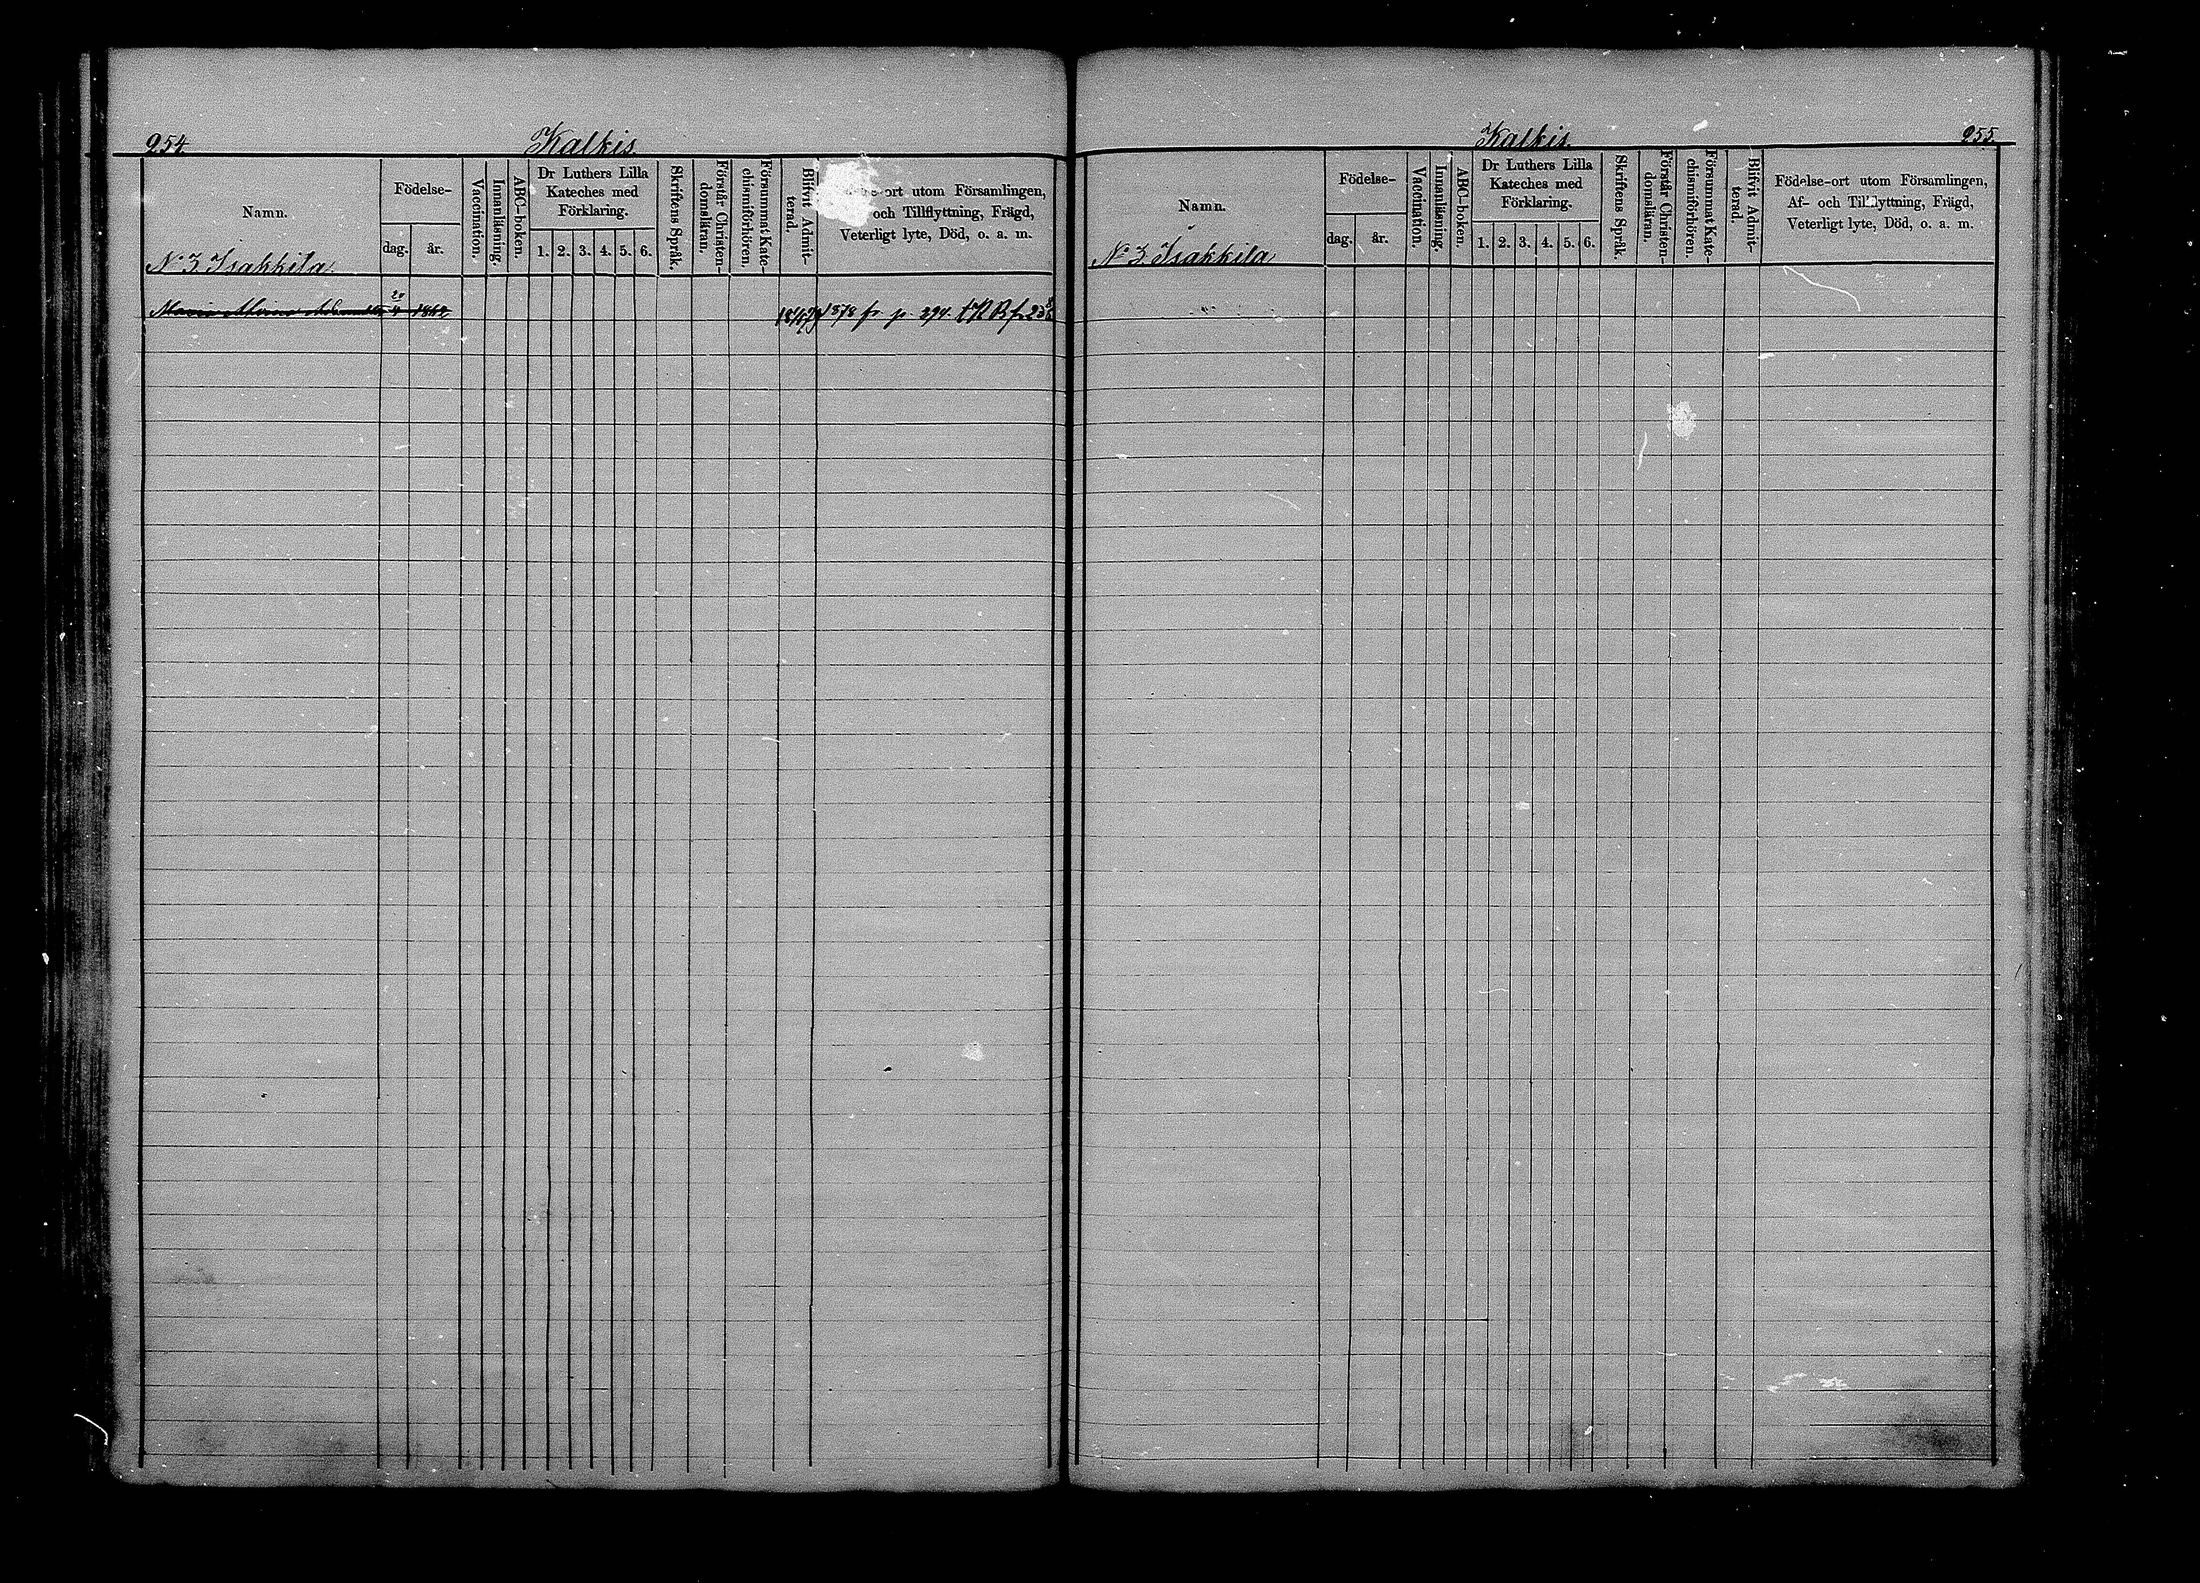 254.
Kalkis.
Namn.
Födelse-
dag.
år.
Vaccination.
Innanläsning.
ABC-boken.
Dr Luthers Lilla
Kateches med
Förklaring.
1. 2. 3. 4. 5. 6.
Skriftens Språk.
Förstår Christen-
domsläran.
Försummat Kate-
chismiförhören.
Blifvit Admit-
terad.
-ort utom Församlingen,
och Tillflyttning, Frägd,
Veterligt lyte, Död, o. a. m.
No 3 Isakkila
Maria
1878 fr p. 294.
255.
Kalkis.
Namn.
Födelse-
dag.
år.
Vaccination.
Innanläsning.
ABC-boken.
Dr Luthers Lilla
Kateches med
Förklaring.
1. 2. 3. 4. 5. 6.
Skriftens Språk.
Förstår Christen-
domsläran.
Försummat Kate-
chismiförhören.
Blifvit Admit-
terad.
Födelse-ort utom Församlingen,
Af- och Tillflyttning, Frägd,
Veterligt lyte, Död, o. a. m.
No 3. Isakkila